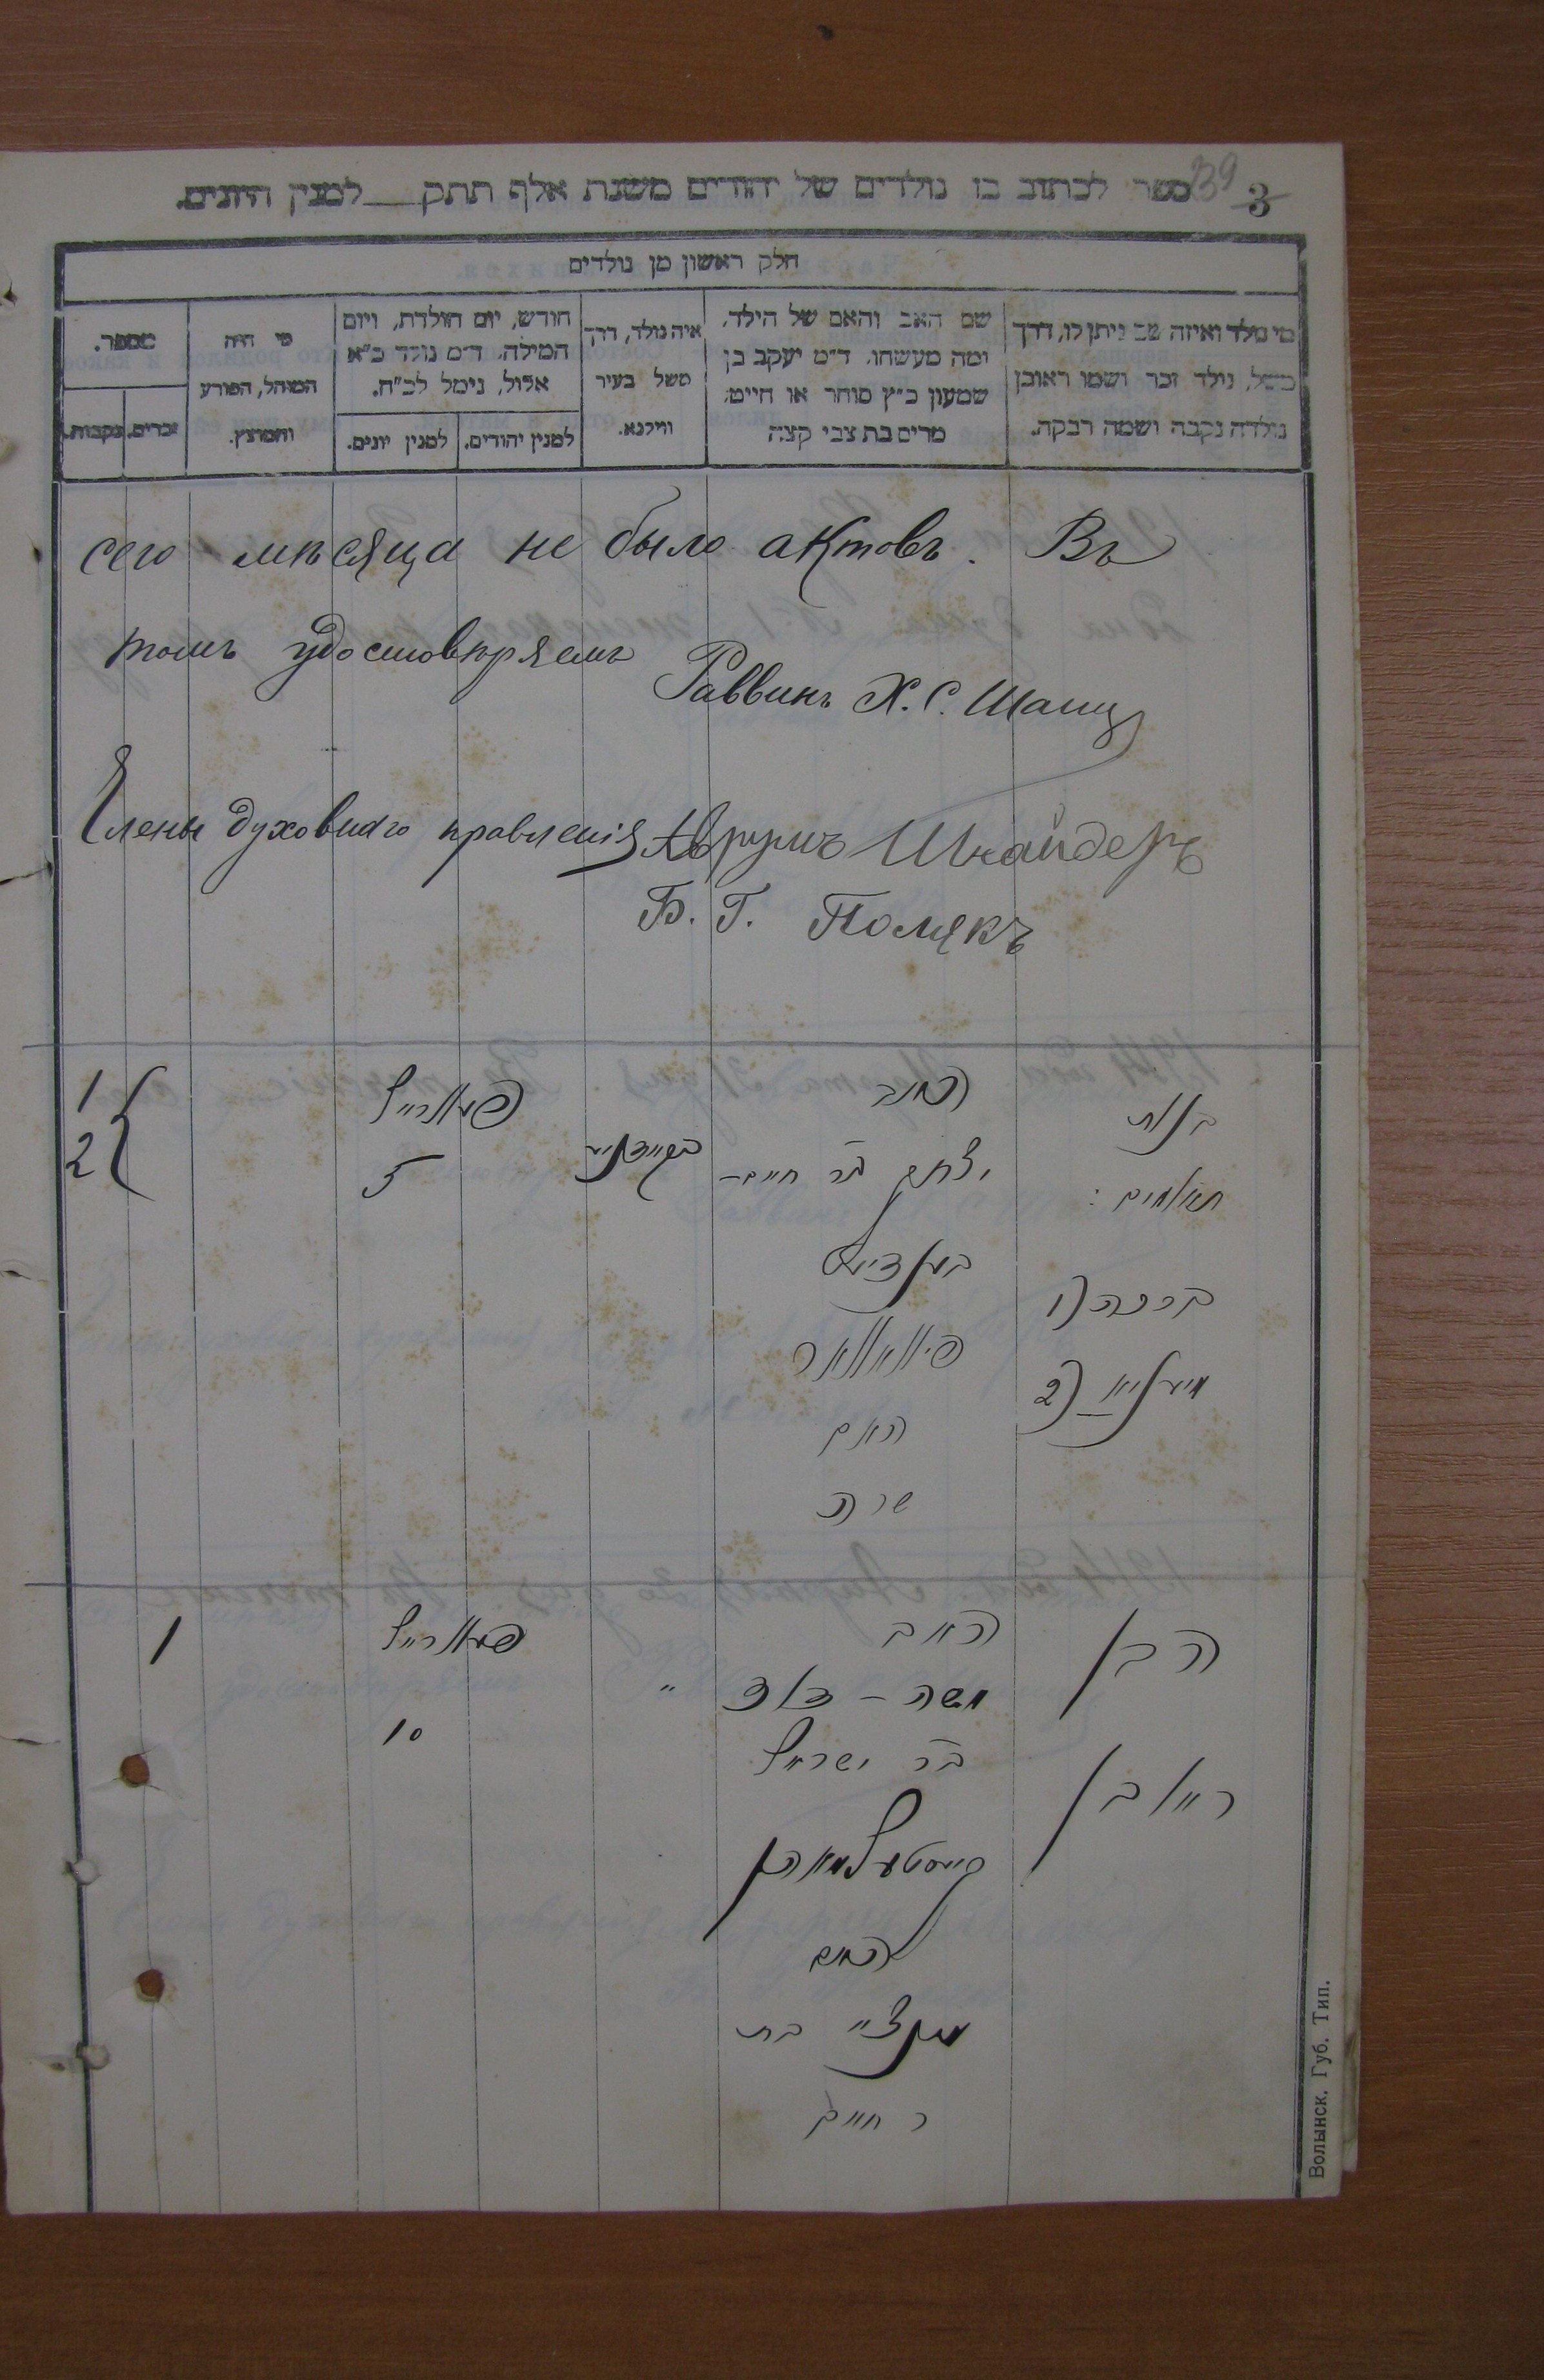 39
3
ספר לכתוב בו נולדים של יהודים משנת אלף תתק___למנין היונים.
חלק ראשון מן נולדים
מי נולד ואיזה שם ניתן לו, דרך
משל, נולד זכר ושמו ראובן
נולדה נקבה ושמה רבקה.
שם האב והאם של הילד,
ומה מעשהו. ד״מ יעקב בן
שמעון כ״ץ סוחר או חייט,
מרים בת צבי קצה
איה נולד, דרך
משל בעיר
ווילנא.
חודש, יום הולדת, ויום
המילה. ד״מ נולד כ״א
אלול, נימל לכ״ח.
למנין יהודים.
למנין יונים.
מי היה
המוהל, הפורע
והמוצץ.
מספר.
זכרים.
נקבות.
сего мѣсяца не было актовъ. Въ
томъ удостовѣряемъ
Раввинъ Х. С. Шапиц
Члены духовнаго правленія Аврумъ Шнайдеръ
Б. Г. Полякъ
בנות
תאומים:
ברכה (1
(2
האב
יצחק בר חיים–
האם
שרה
פעוורייל
5
1
2
הבן
ראובן
האב
משה – דוד
בר ישראל
האם
בת
ר חיים
"
פעוורייל
10
1
Волынск. Губ. Тип.